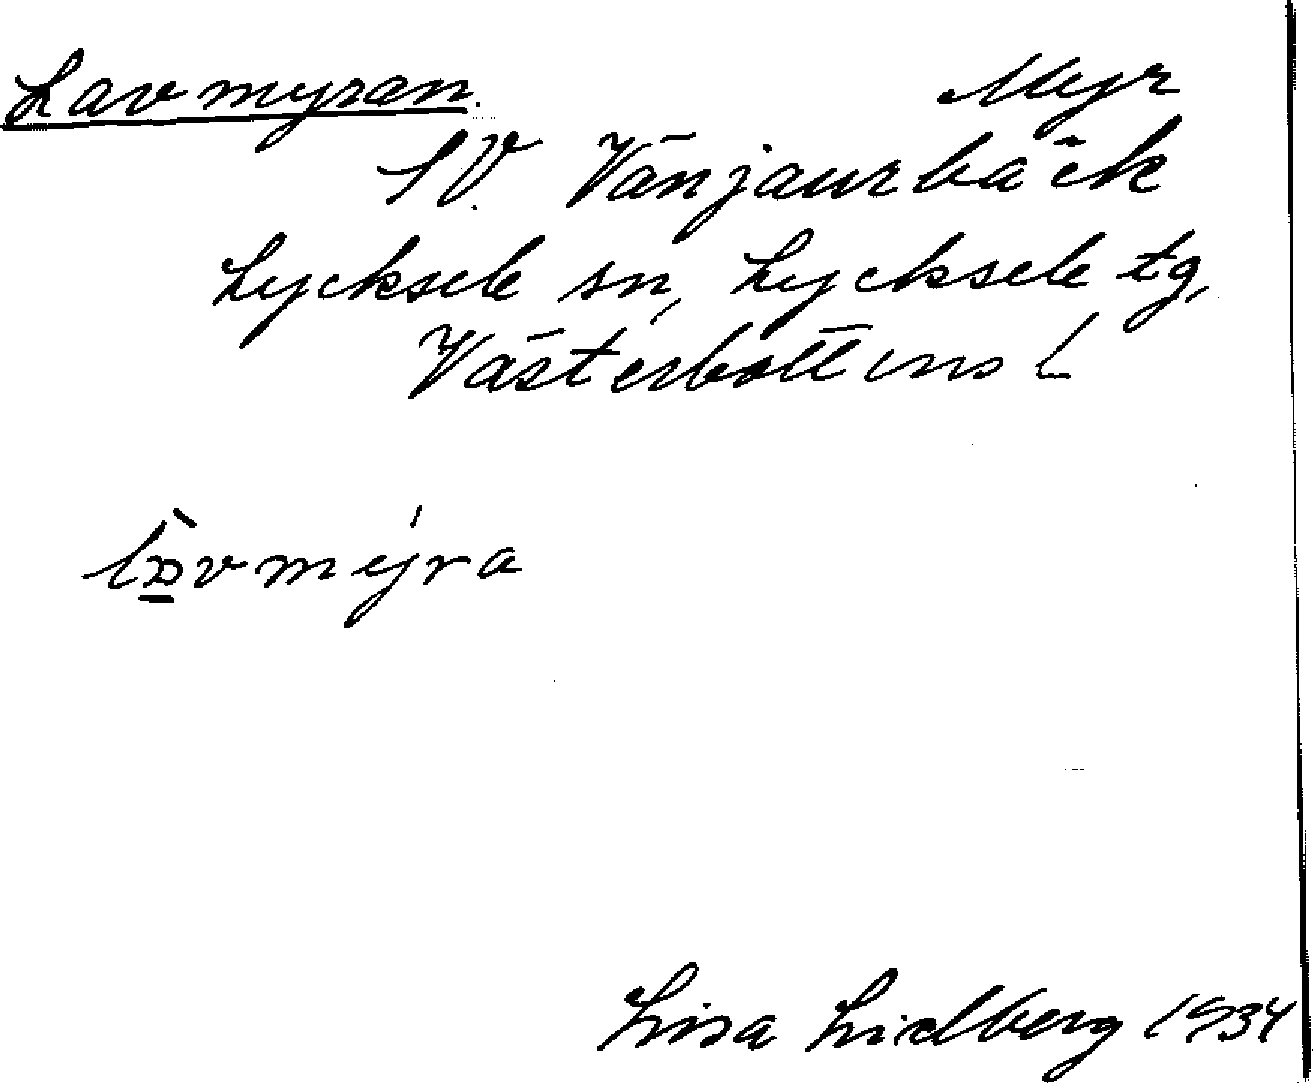 Lavmyran. Myr
SV. Vänjaurbäck
Lycksele sn, Lycksele tg,
Västerbottens l
Lisa Lidberg 1934